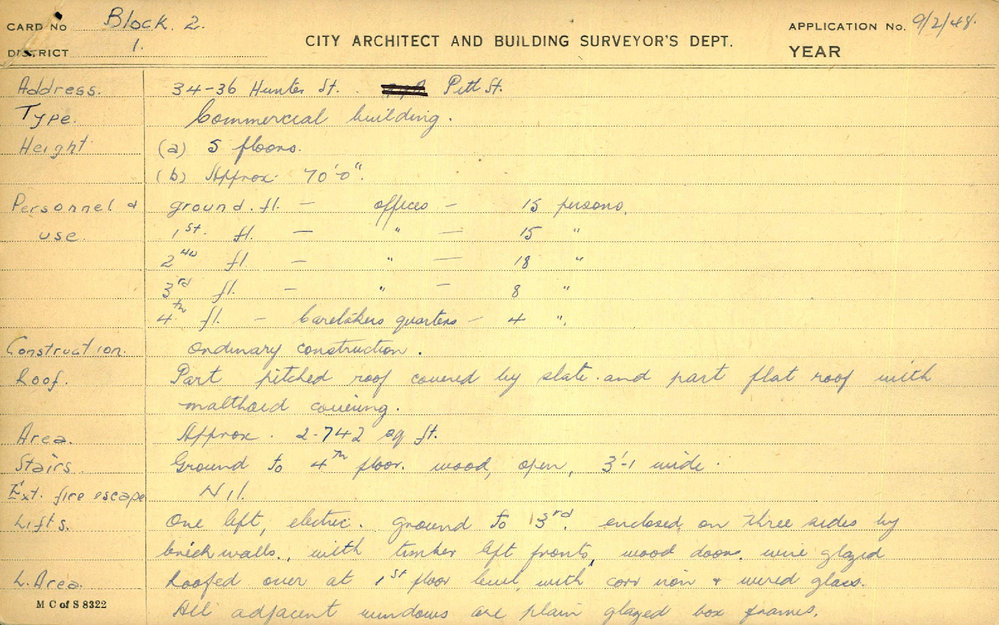 CARD No Block. 2.
DISTRICT 1.
CITY ARCHITECT AND BUILDING SURVEYOR'S DEPT.
APPLICATION No. 9/2/48.
YEAR
Address. 34-36 Hunter St. Pitt St.
Type. Commercial building.
Height (a) 5 floors.
(b) Approx 70'-0".
Personnel & ground. fl. — offices — 15 persons.
use 1st. fl. — " — 15 "
2nd fl — " — 18 "
3rd fl. — " — 8 "
4th fl. — Caretakers quarters — 4 ".
Construction. Ordinary construction.
Roof. Part pitched roof covered by slate. and part flat roof with
malthoid covering.
Area. Approx. 2.742 sq ft.
Stairs. Ground to 4th floor. wood, open, 3'-1 wide.
Ext. fire escape Nil.
Lifts. One lift, electric. ground to 3rd. enclosed on three sides by
brick walls., with timber lift fronts, wood doors, wire glazed
L. Area. Roofed over at 1st floor level, with corr iron & wired glass.
All adjacent windows are plain glazed box frames.
M C of S 8322